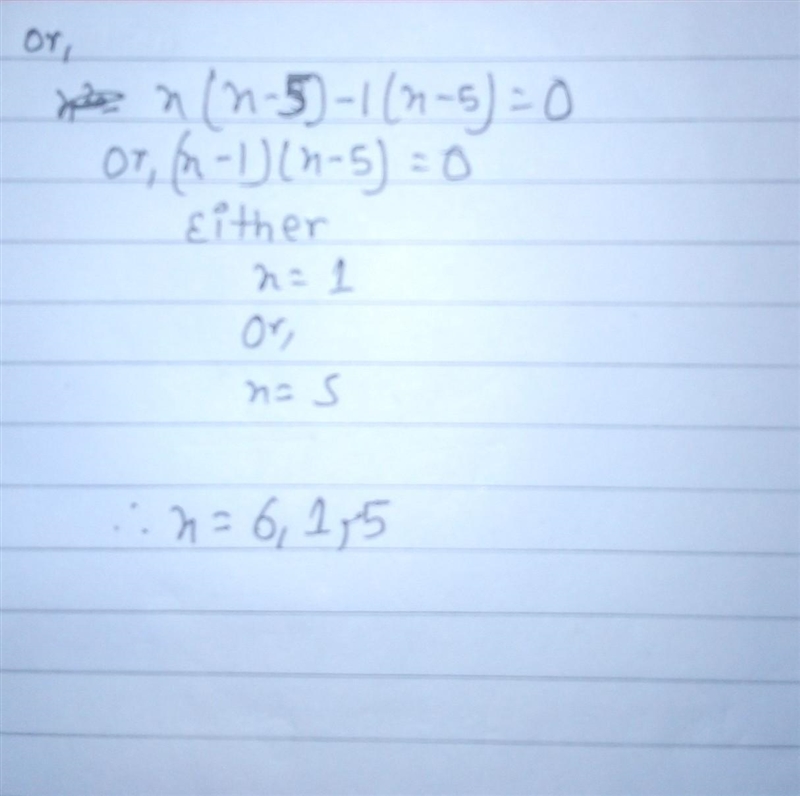 or,
x(x-5)-1(x-5)=0
or, (x-1)(x-5)=0
Either
x=1
Or,
x=5
∴ x=6,1,5